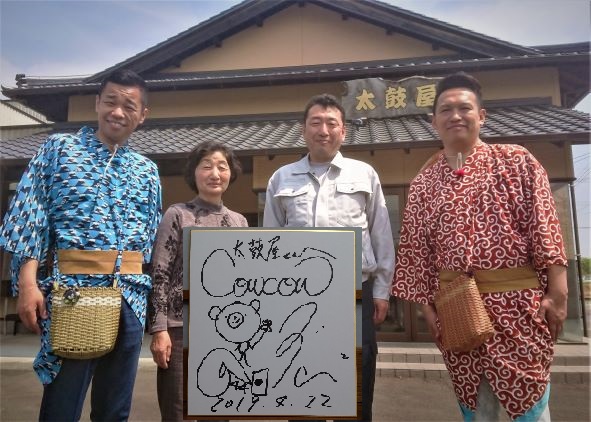 太鼓屋
太鼓屋さん
Cowcow
2019.4.22